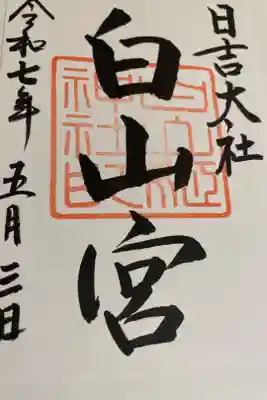 日吉大社
白山宮
令和七年 五月三日